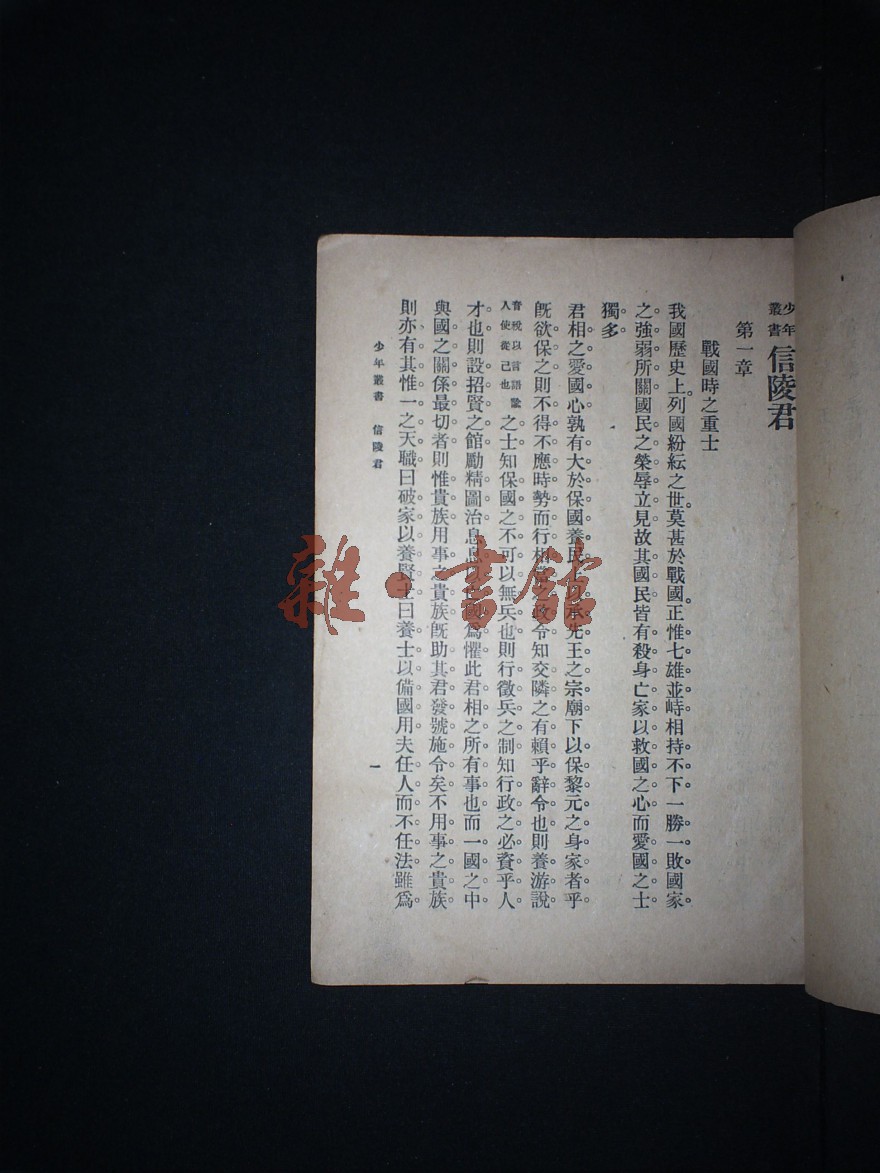 少年叢書 信陵君
第一章
戰國時之重士
我國歷史上。列國紛紜之世。莫甚於戰國。正惟七雄並峙相持不下一勝一敗國家
之強弱所關國民之榮辱立見故其國民皆有殺身亡家以救國之心而愛國之士
獨多
君相之愛國心孰有大於保國養民承先王之宗廟下以保黎元之身家者乎
既欲保之則不得不應時勢而行相之政令知交隣之有賴乎辭令也則養游說
音稅以言語
人使從己也 之士知保國之不可以無兵也則行徵兵之制知行政之必資乎人
才也則設招賢之館勵精圖治息息為懼此君相之所有事也而一國之中
與國之關係最切者則惟貴族用事之貴族既助其君發號施令矣不用事之貴族
則亦有其惟一之天職曰破家以養賢士曰養士以備國用夫任人而不任法雖爲
少年叢書 信陵君
一
雜·書館